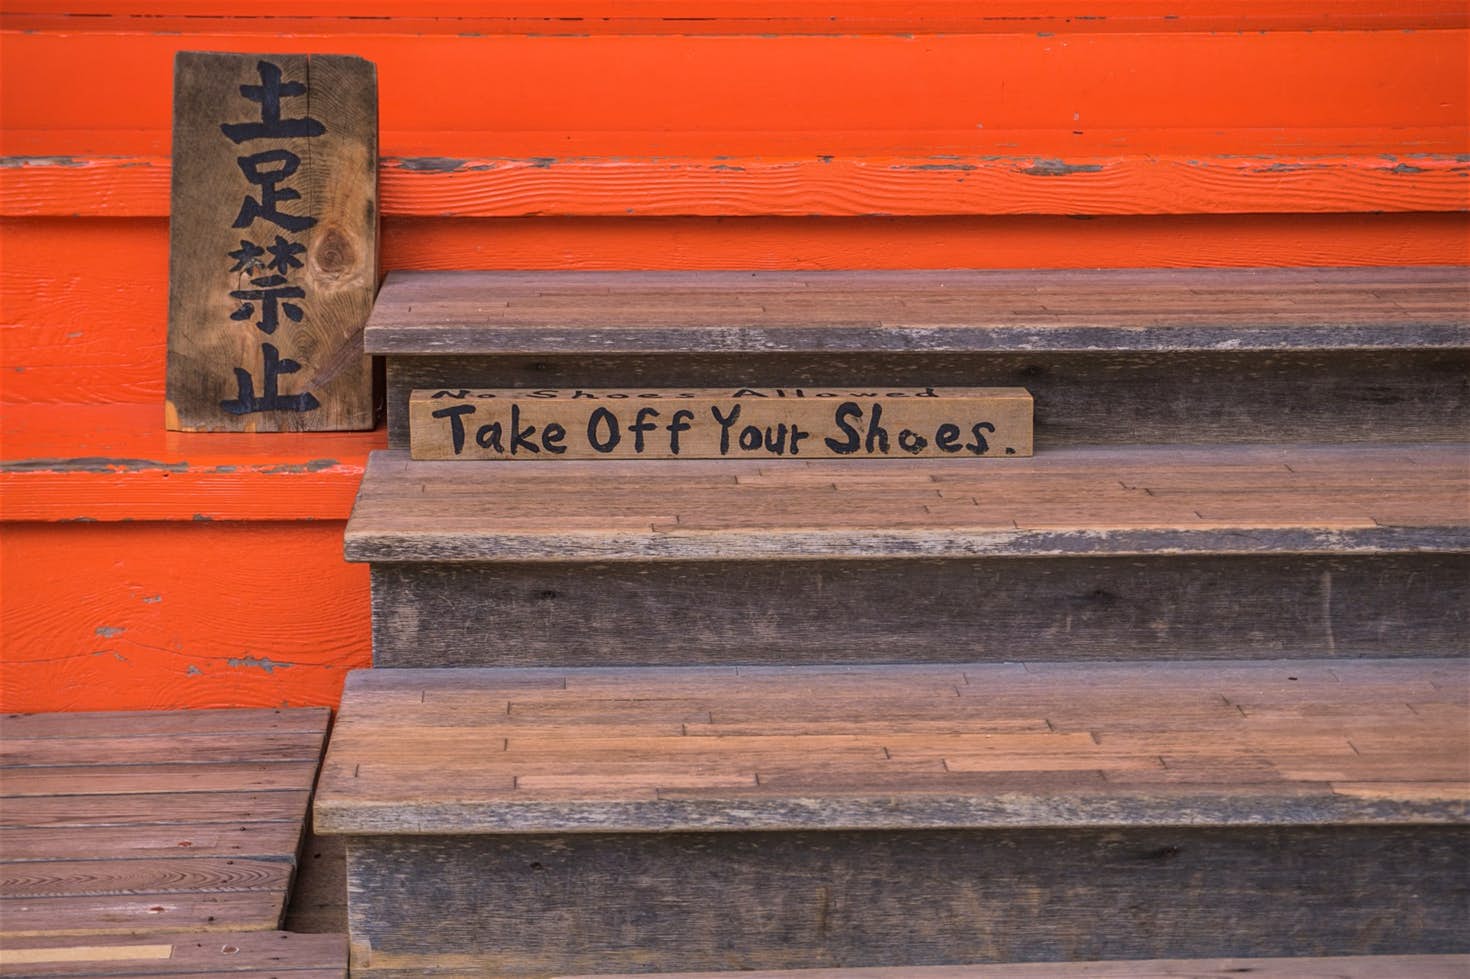 土足禁止
No Shoes Allowed
Take Off Your Shoes.